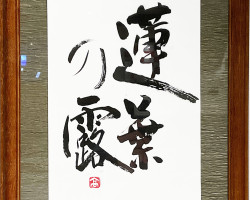 蓮葉
の露